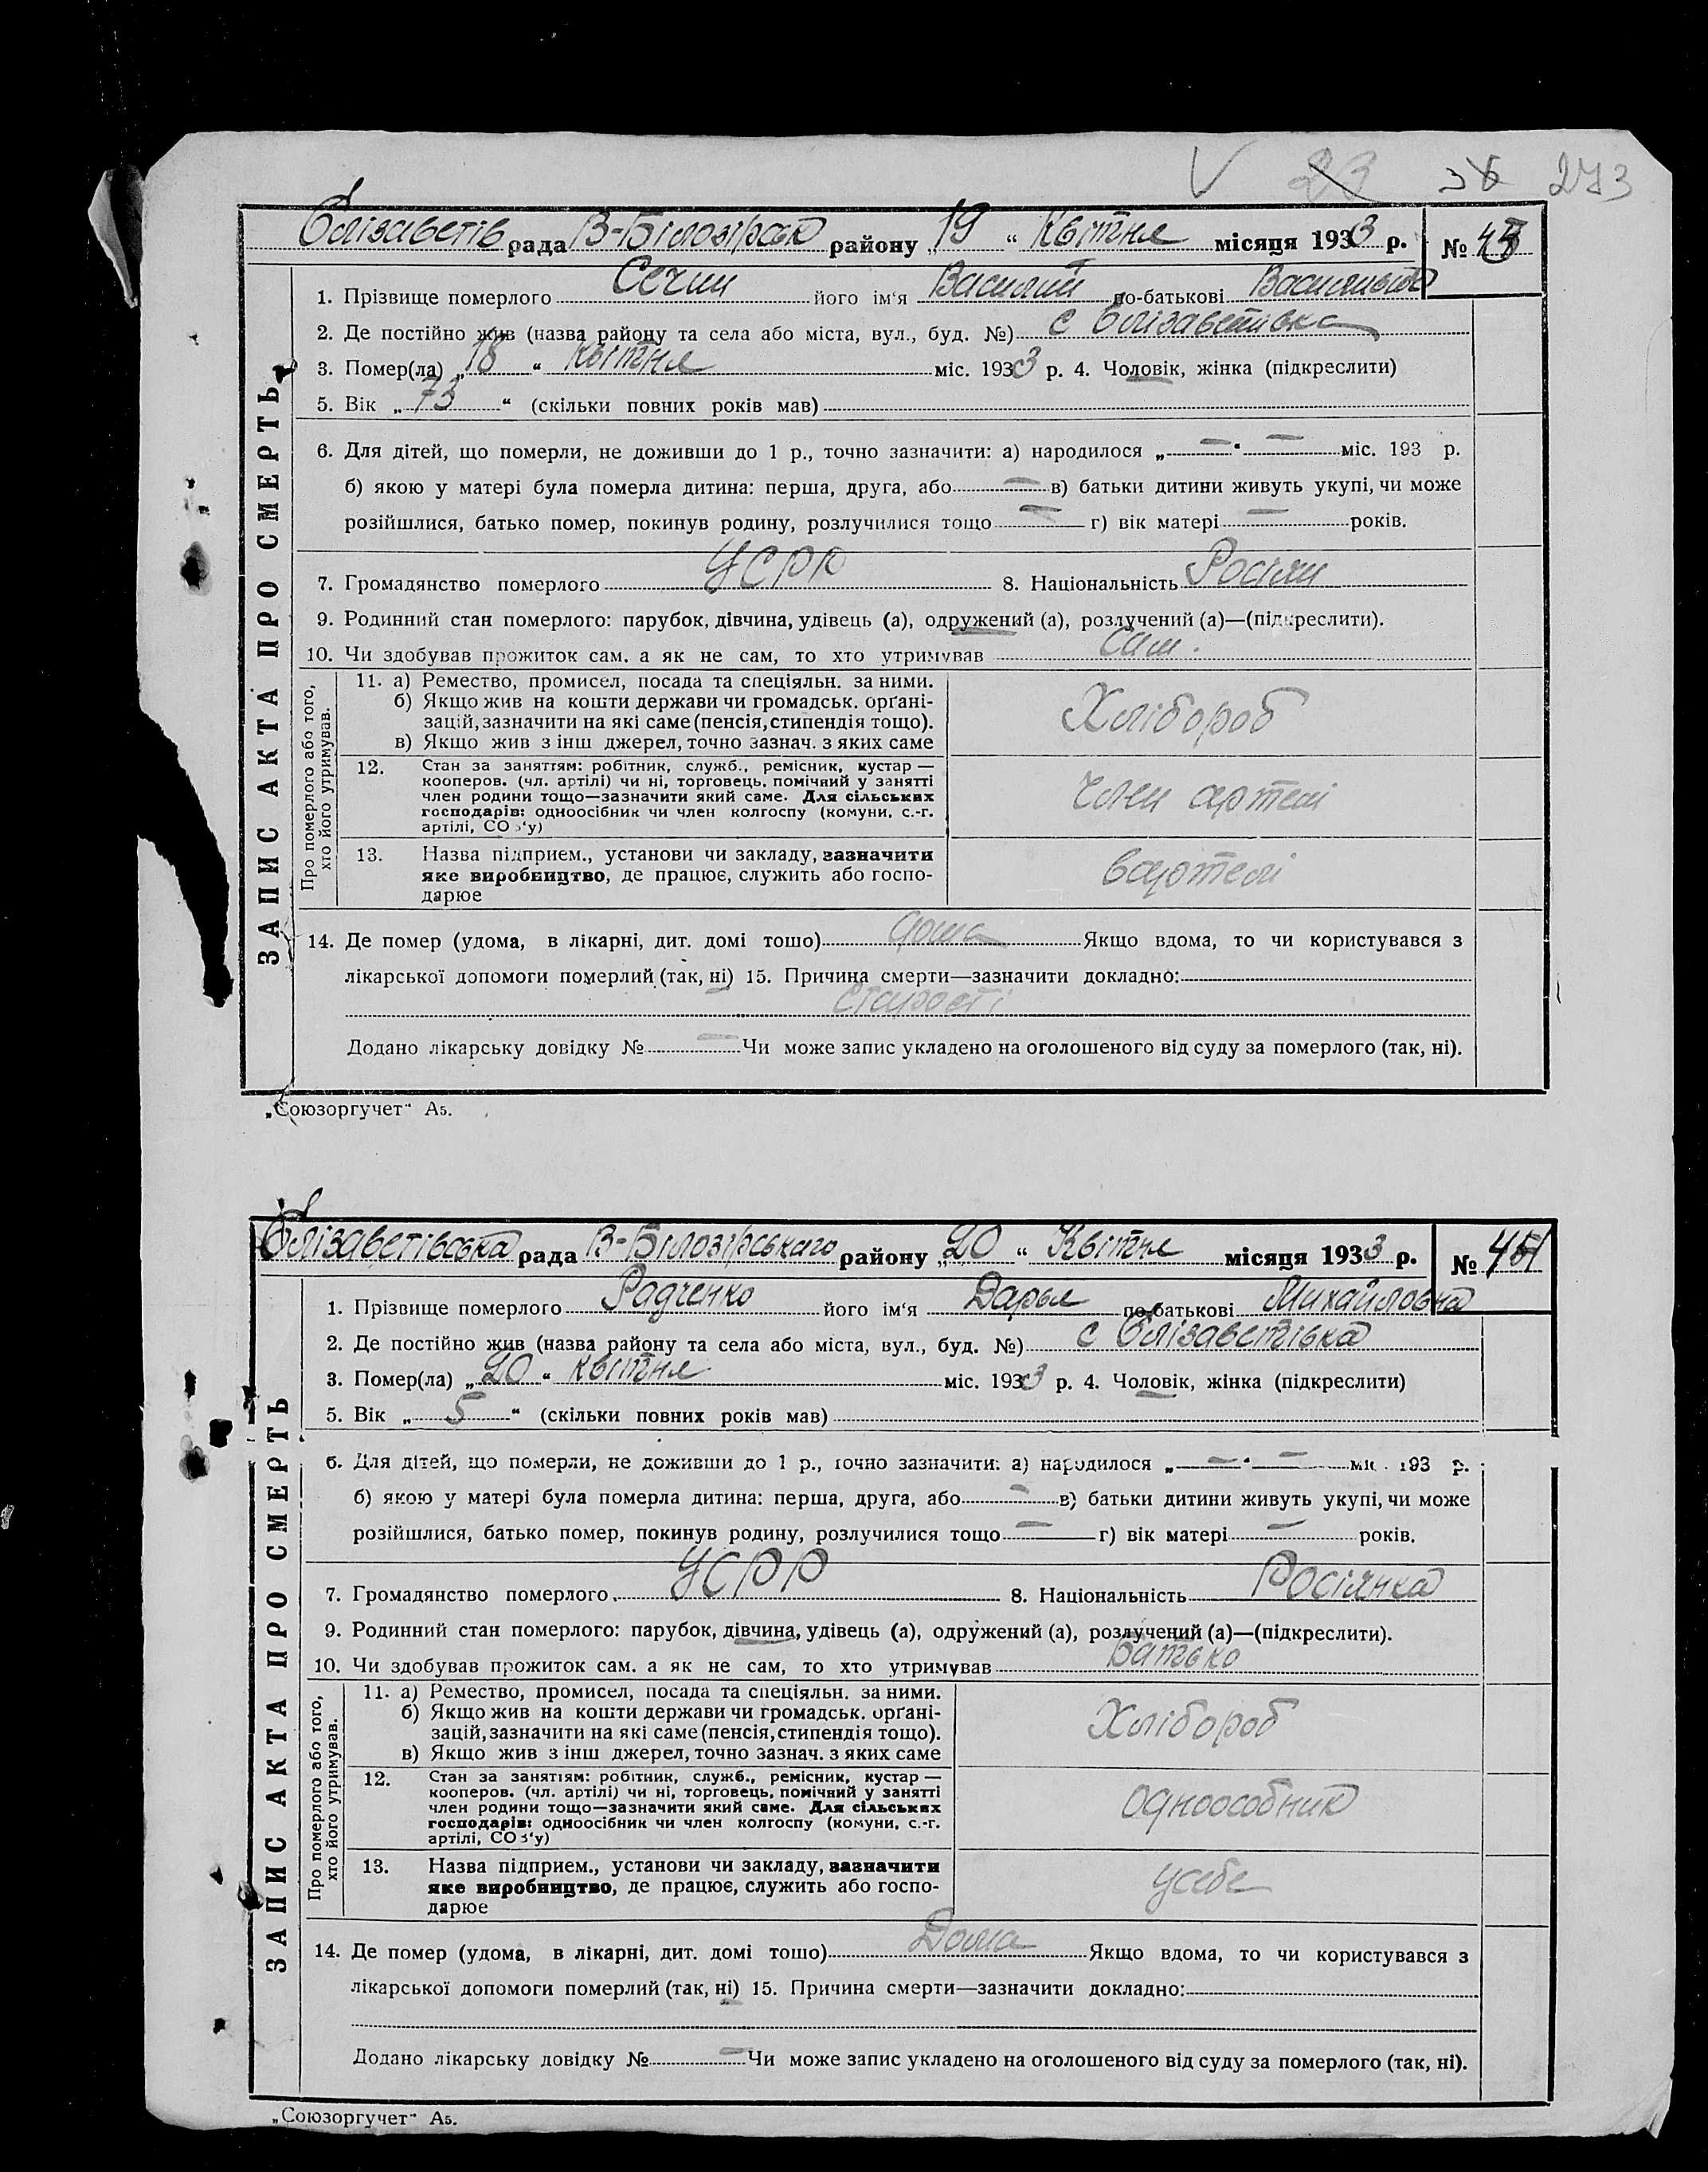 V 23 273
Єлізаветів рада В-Білозірськ району „19“ Квітня місяця 1933 р. №
1. Прізвище померлого його ім‘я Василий по-батькові
2. Де постійно жив (назва району та села або міста, вул., буд. №) с Єлізаветівка
3. Помер(ла) „18“ квітня міс. 1933 р. 4. Чоловік, жінка (підкреслити)
5. Вік „73“ (скільки повних років мав)
6. Для дітей, що померли, не доживши до 1 р., точно зазначити: а) народилося „—“ — міс. 193 р.
б) якою у матері була померла дитина: перша, друга, або — в) батьки дитини живуть укупі, чи може
розійшлися, батько помер, покинув родину, розлучилися тощо — г) вік матері — років.
7. Громадянство померлого УСРР 8. Національність
9. Родинний стан померлого: парубок, дівчина, удівець (а), одружений (а), розлучений (а)—(підкреслити).
10. Чи здобував прожиток сам. а як не сам, то хто утримував Сам.
11. а) Ремество, промисел, посада та спеціяльн. за ними.
б) Якщо жив на кошти держави чи громадськ. орґані-
зацій, зазначити на які саме (пенсія, стипендія тощо).
в) Якщо жив з інш джерел, точно зазнач. з яких саме
Хлібороб
12. Стан за заняттям: робітник, служб., ремісник, кустар —
кооперов. (чл. артілі) чи ні, торговець, помічний у занятті
член родини тощо—зазначити який саме. Для сільських
господарів: одноосібник чи член колгоспу (комуни, с.-г.
артілі, СОз‘у)
член артелі
13. Назва підприєм., установи чи закладу, зазначити
яке виробництво, де працює, служить або госпо-
дарює
вартелі
14. Де помер (удома, в лікарні, дит. домі тошо) дома Якщо вдома, то чи користувався з
лікарської допомоги померлий (так, ні) 15. Причина смерти—зазначити докладно:
Старості
Додано лікарську довідку № — Чи може запис укладено на оголошеного від суду за померлого (так, ні).
ЗАПИС АКТА ПРО СМЕРТЬ
Про померлого або того,
хто його утримував.
„Союзоргучет“ А5.
Єлізаветівська рада В-Білозірського району „20“ Квітня місяця 1933 р. №
1. Прізвище померлого Радченко його ім‘я Дарья по-батькові Михайловна
2. Де постійно жив (назва району та села або міста, вул., буд. №) с Єлізаветівка
3. Помер(ла) „20“ квітня міс. 1933 р. 4. Чоловік, жінка (підкреслити)
5. Вік „5“ (скільки повних років мав)
6. Для дітей, що померли, не доживши до 1 р., точно зазначити: а) народилося „—“ — міс. 193 р.
б) якою у матері була померла дитина: перша, друга, або — в) батьки дитини живуть укупі, чи може
розійшлися, батько помер, покинув родину, розлучилися тощо — г) вік матері — років.
7. Громадянство померлого УСРР 8. Національність Росіянка
9. Родинний стан померлого: парубок, дівчина, удівець (а), одружений (а), розлучений (а)—(підкреслити).
10. Чи здобував прожиток сам. а як не сам, то хто утримував Батько
11. а) Ремество, промисел, посада та спеціяльн. за ними.
б) Якщо жив на кошти держави чи громадськ. орґані-
зацій, зазначити на які саме (пенсія, стипендія тощо).
в) Якщо жив з інш джерел, точно зазнач. з яких саме
Хлібороб
12. Стан за заняттям: робітник, служб., ремісник, кустар —
кооперов. (чл. артілі) чи ні, торговець, помічний у занятті
член родини тощо—зазначити який саме. Для сільських
господарів: одноосібник чи член колгоспу (комуни, с.-г.
артілі, СОз‘у)
одноособник
13. Назва підприєм., установи чи закладу, зазначити
яке виробництво, де працює, служить або госпо-
дарює
усебе
14. Де помер (удома, в лікарні, дит. домі тошо) Дома Якщо вдома, то чи користувався з
лікарської допомоги померлий (так, ні) 15. Причина смерти—зазначити докладно:
Додано лікарську довідку № — Чи може запис укладено на оголошеного від суду за померлого (так, ні).
ЗАПИС АКТА ПРО СМЕРТЬ
Про померлого або того,
хто його утримував.
„Союзоргучет“ А5.